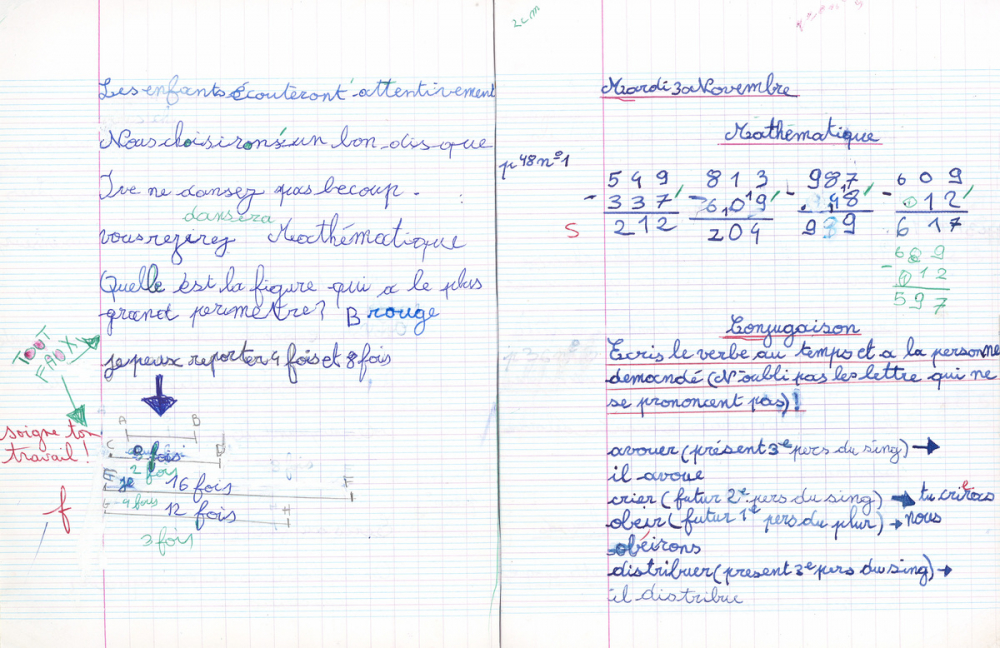 Les enfants écouteront attentivement
Nous choisirons un bon disque
Ive ne dansez pas becoup.
dansera
vous rezerez Mathématique
Quelle est la figure qui a le plus
grand perimetre? B rouge
TOUT
FAUX
je peux reporter 4 fois et 8 fois
A B
soigne ton
travail!
C D
8 fois
2 fois
E je 16 fois F
G 4 fois 12 fois H
3 fois
f
2cm
Mardi 3 Novembre
Mathématique
p 48 n° 1
549 813 987 609
- 337 - 609 - 48 - 012
S 212 204 939 617
609
- 012
597
Conjugaison
Ecris le verbe au temps et a la personne
demandé (N'oubli pas les lettre qui ne
se prononcent pas)!
avouer (présent 3e pers du sing) →
il avoue
crier (futur 2e pers du sing) → tu crieras
obeir (futur 1e pers du plur) → nous
obéirons
distribuer (present 3e pers du sing) →
il distribue